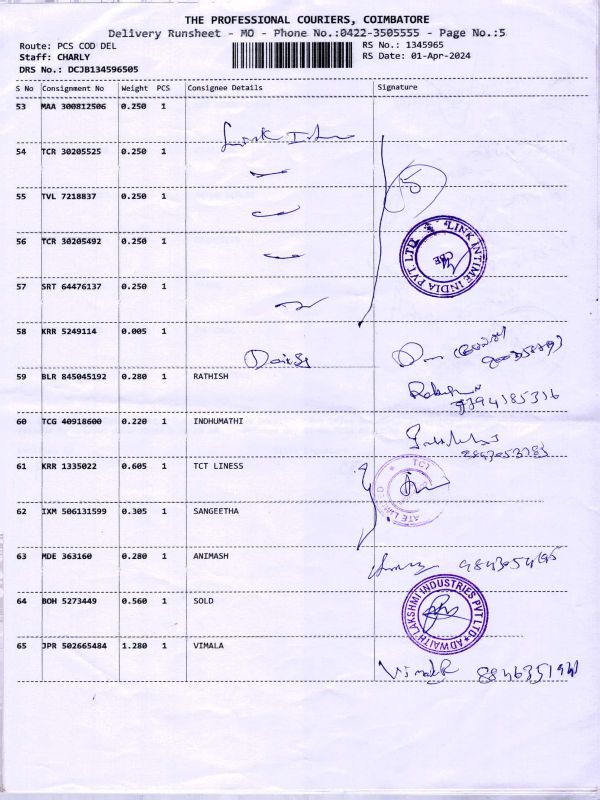 THE PROFESSIONAL COURIERS, COIMBATORE
Delivery Runsheet - MO - Phone No.:0422-3505555 - Page No.:5
Route: PCS COD DEL RS No.: 1345965
Staff: CHARLY RS Date: 01-Apr-2024
DRS No.: DCJB134596505
S No Consignment No Weight PCS Consignee Details Signature
53 MAA 300812506 0.250 1
54 TCR 30205525 0.250 1
55 TVL 7218837 0.250 1
5
56 TCR 30205492 0.250 1
LINK INTIME INDIA PVT LTD
CBE
57 SRT 64476137 0.250 1
58 KRR 5249114 0.005 1
59 BLR 845045192 0.280 1 RATHISH
60 TCG 40918600 0.220 1 INDHUMATHI
61 KRR 1335022 0.605 1 TCT LINESS
TCT
62 IXM 506131599 0.305 1 SANGEETHA
63 MDE 363160 0.280 1 ANIMASH
64 BOH 5273449 0.560 1 SOLD
ADWAITH LAKSHMI INDUSTRIES PVT LTD
65 JPR 502665484 1.280 1 VIMALA